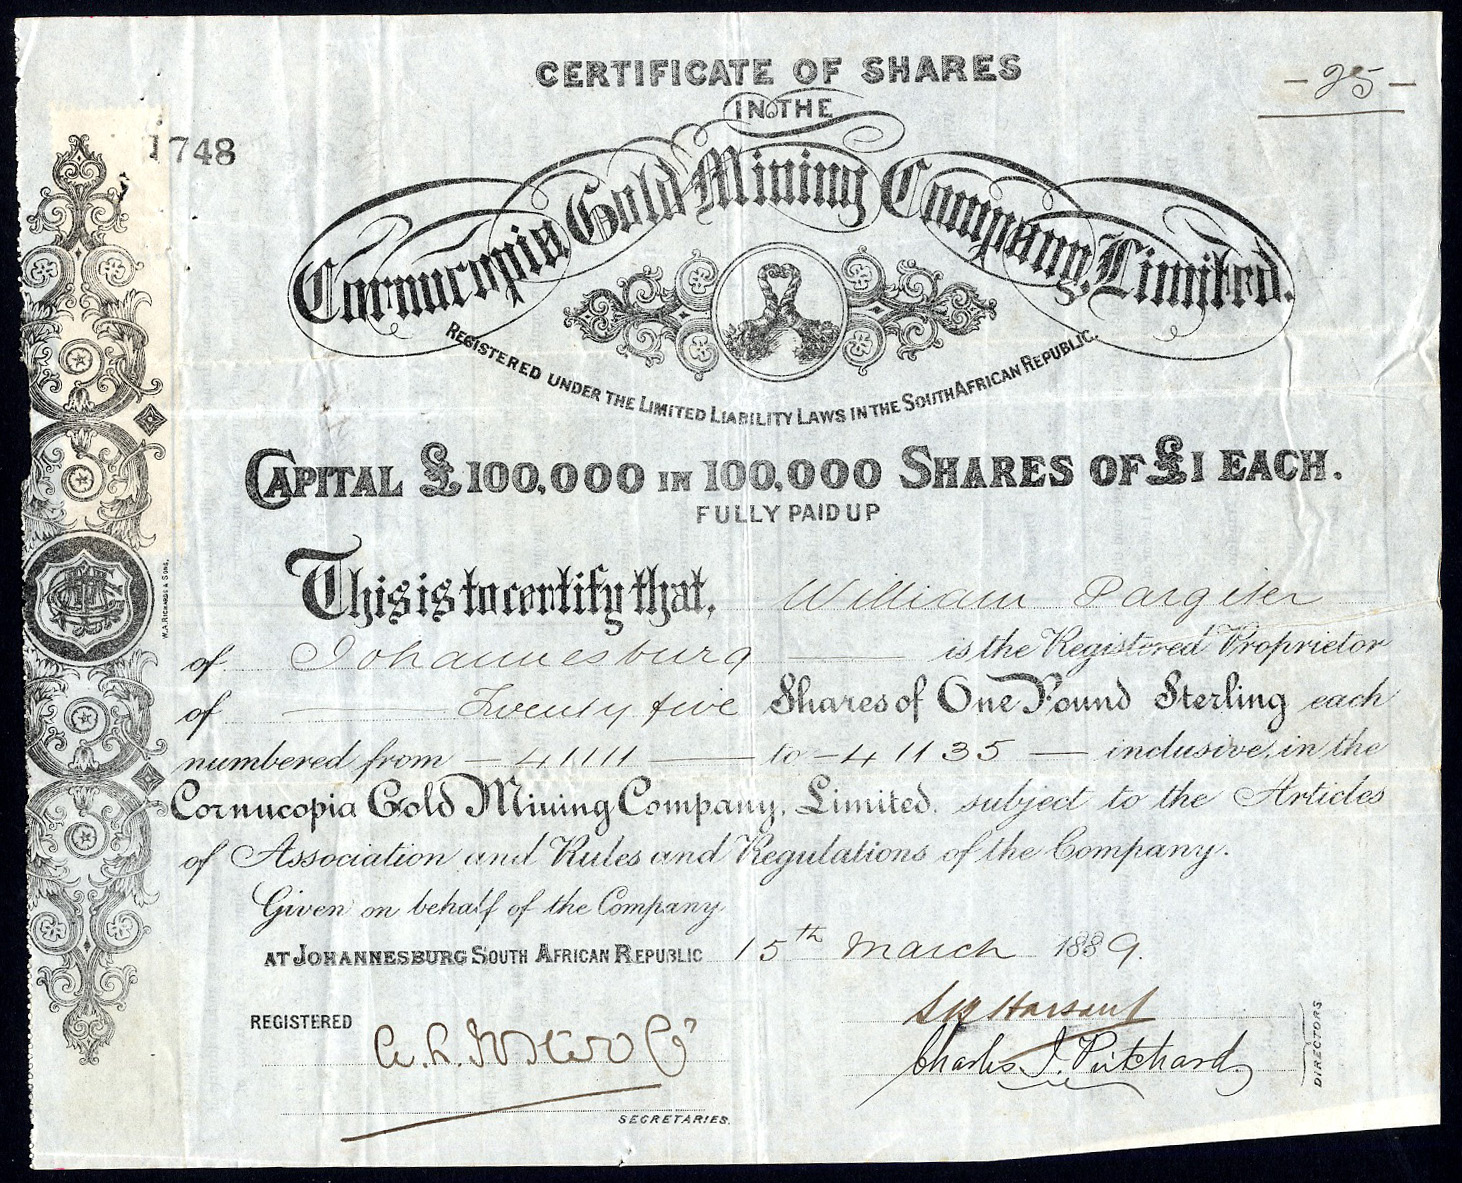 CERTIFICATE OF SHARES
- 25 -
IN THE
748
Cornucopia Gold Mining Company, Limited.
REGISTERED UNDER THE LIMITED LIABILITY LAWS IN THE SOUTH AFRICAN REPUBLIC.
CAPITAL £100,000 IN 100,000 SHARES OF £1 EACH.
FULLY PAID UP
This is to certify that, William Pargiter
of Johannesburg is the Registered Proprietor
of Twenty five Shares of One Pound Sterling each
numbered from - 41111 - to - 41135 - inclusive, in the
Cornucopia Gold Mining Company, Limited. subject to the Articles
of Association and Rules and Regulations of the Company.
Given on behalf of the Company
AT JOHANNESBURG SOUTH AFRICAN REPUBLIC 15th March 1889.
REGISTERED
Charles J. Pritchard.
DIRECTORS
SECRETARIES.
W.A. RICHARDS & SONS.